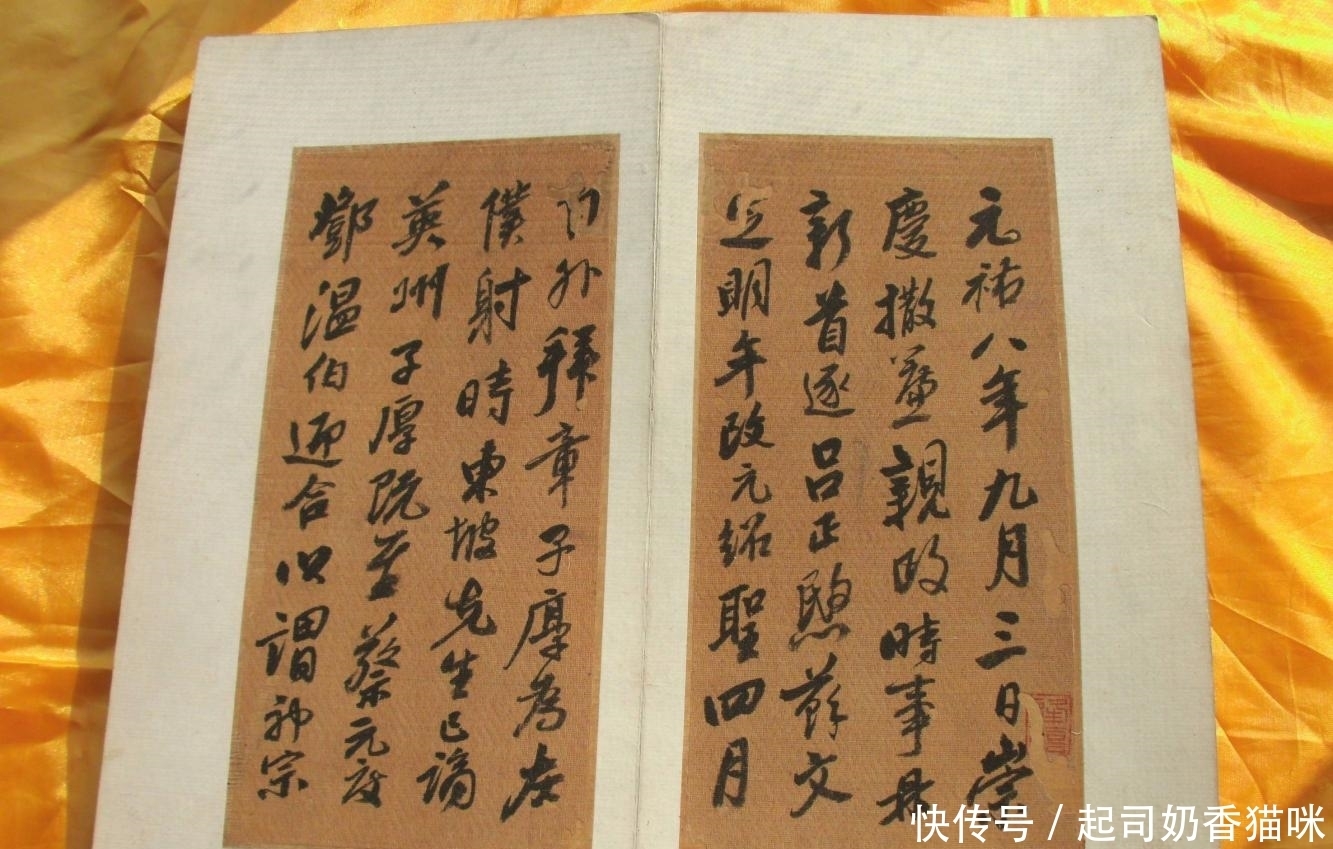 元祐八年九月三日崇
慶撤簾親政時事
新首逐呂正愍蘇文
定明年改元紹聖四月
外拜章子厚為左
僕射時東坡先生已謫
英州子厚既至蔡元度
鄧溫伯迎合以謂神宗
快传号 / 起司奶香猫咪